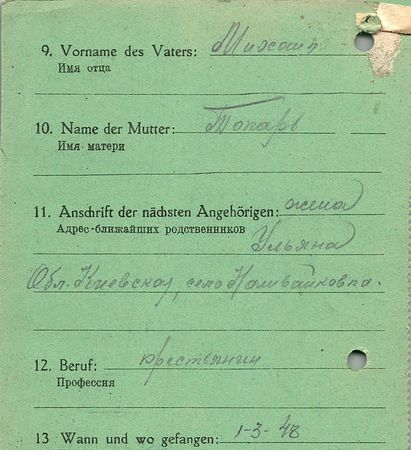 9. Vorname des Vaters: Михаил
Имя отца
10. Name der Mutter:
Имя матери
11. Anschrift der nächsten Angehörigen: жена
Адрес-ближайших родственников Ульяна
Обл. Киевская, село Наливайковка.
12. Beruf: крестьянин
Профессия
13 Wann und wo gefangen: 1-3-